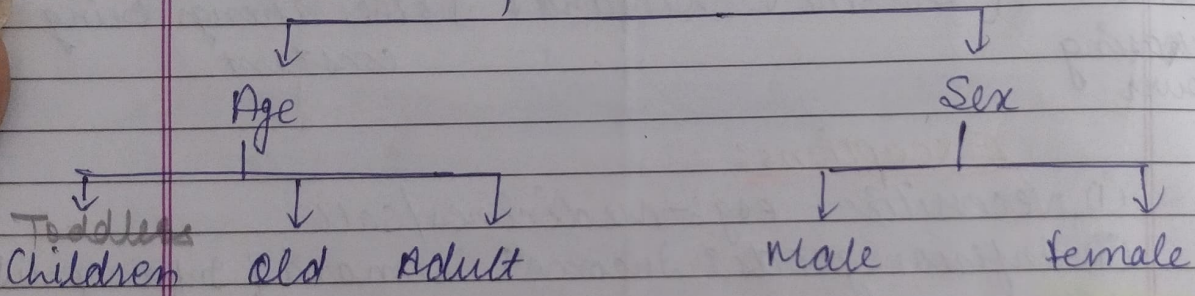 Age Sex
Toddlers
Children Old Adult Male female